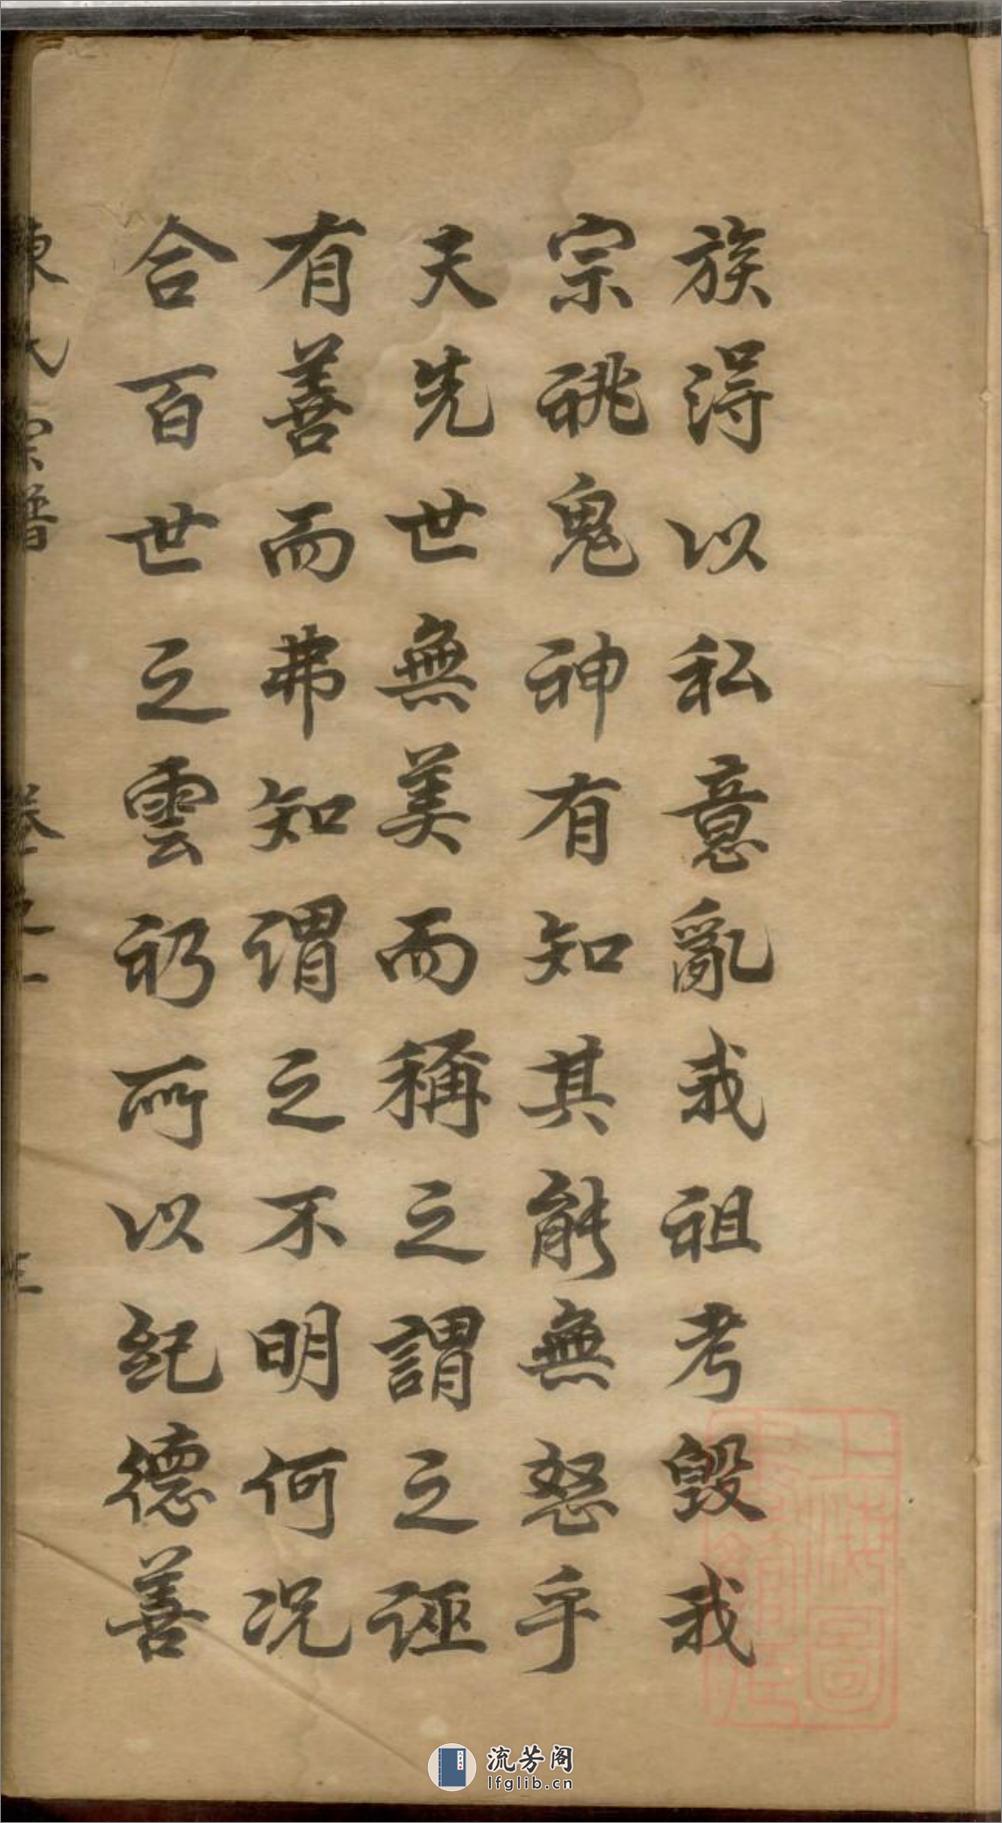 族得以私意亂我祖考毀我
宗祧鬼神有知其能無怒乎
夫先世無美而稱之謂之誣
有善而弗知謂之不明何況
合百世之雲礽所以紀德善
陳氏宗譜 卷之一
上海圖
書館藏
流芳阁
lfglib.cn